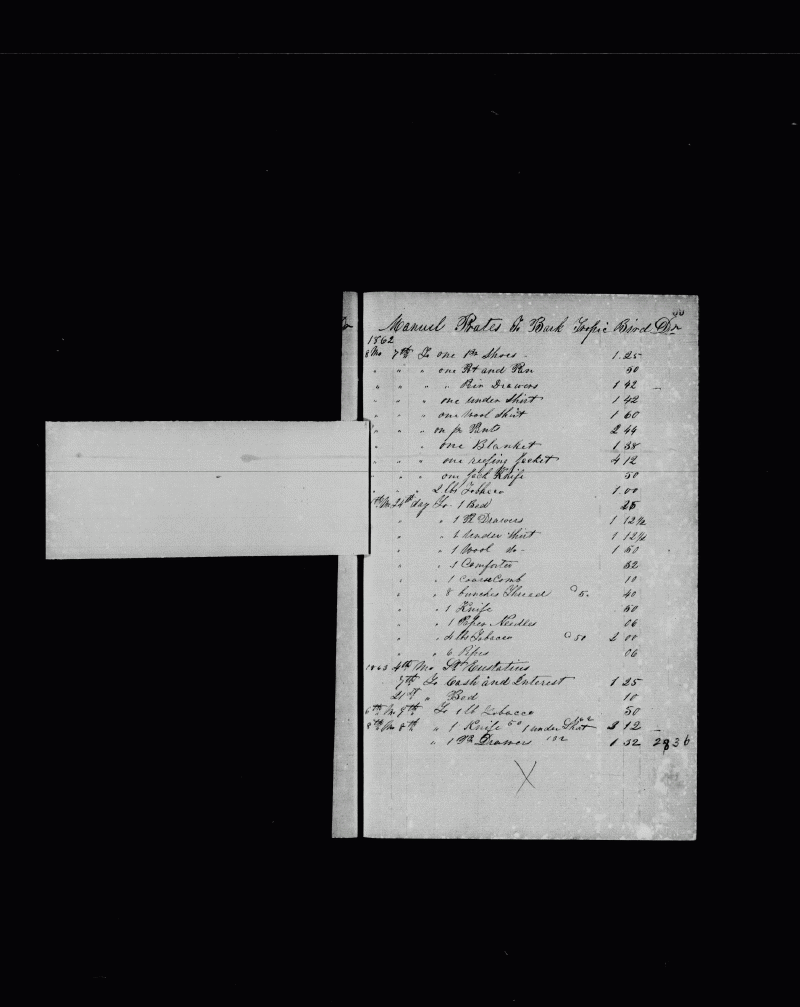 Manuel Prates To Bark Tropic Bird Dr
1862
8 Mo 7th To one Pr Shoes - 1.25
" " " one Pot and Pan 50
" " " " Pair Drawers 1 42
" " " one under Shirt 1 42
" " " one Wool Shirt 1 60
" " " on pr Pants 2 44
" " " one Blanket 1 38
" " " one reefing Jacket 4 12
" " " one Jack Knife 50
" " " 2 lbs Tobacco 1.00
Mo 24th day To 1 Bed 25
" " 1 Pr Drawers 1 12½
" " 1 under Shirt 1 12½
" " 1 Wool do- 1 50
" " 1 Comforter
" " 1 Coarse Comb 10
" " 8 bunches Thread @ 5 40
" " 1 Knife 50
" " 1 Paper Needles 06
" " 4 lbs Tobacco @ 50 2 00
" " 6 Pipes 06
1863 4th Mo St Eustatius
7th To Cash and Interest 1 25
21st " Bed 10
6th Mo 9th To 1 lb Tobacco 50
8th Mo 8th " 1 Knife 50 1 under Shirt 62 12
" 1 Pr Drawers 132 1 32 28 36
X